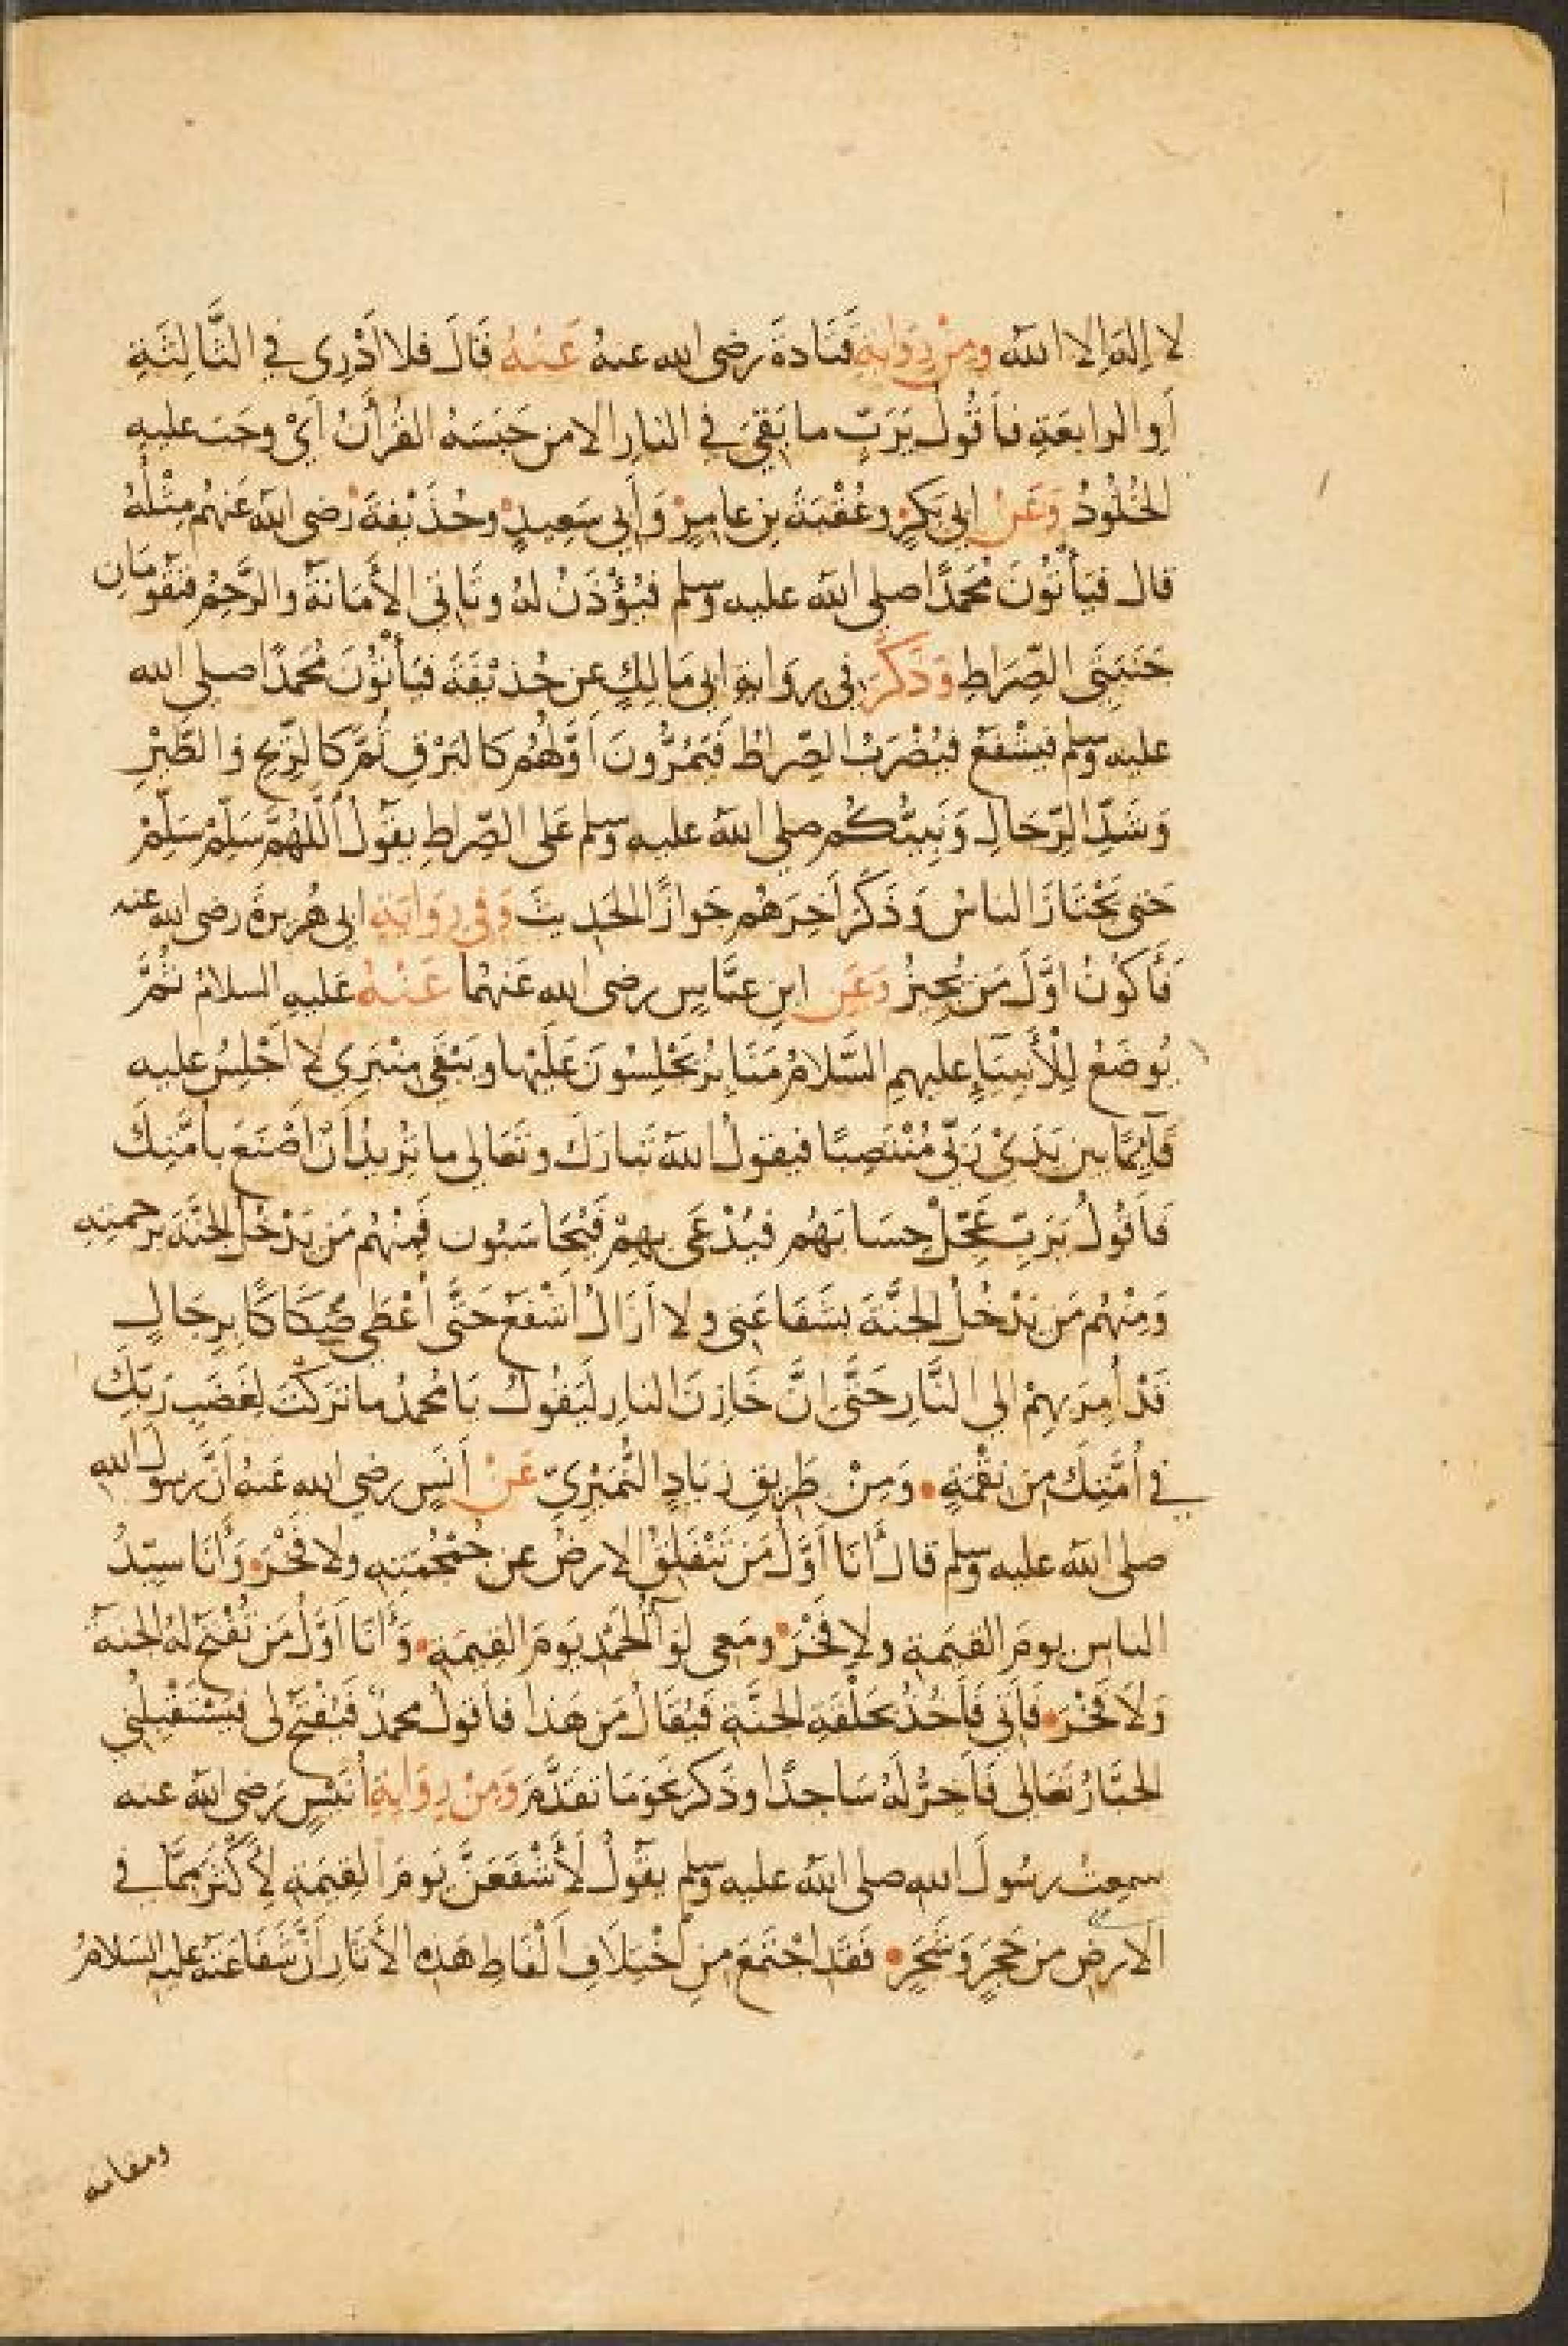 لا إله إلا الله ومن رواية قتادة رضى الله عنه عَنْهُ قَالَ فلا أَدْرِى فِي الثَّالِثَةِ
أَوِ الرابعَةِ فأَقُولُ يَرَبِّ ما بَقِيَ فِي النارِ الا من حَبَسَهُ القُرأنُ اَيْ وجَبَ عليهِ
الخُلُودُ وَعَنْ ابى بَكرٍ وعُقْبَةَ بنِ عامِرٍ وَأَبِي سَعِيدٍ وحُذَيْفَةَ رضى الله عَنهُم مِثْلُهُ
قال فيَأْتُونَ مُحمَّدًا صلى الله عليه وسلم فيُؤْذَنُ لهُ وتَأتي الأَمَانَةُ والرَّحِمُ فتَقُومَانِ
جَنَبَتَىِ الصِّرَاطِ وَذَكَرَ فى رِوَايةِ ابى مَالِكٍ عن حُذَيْفَةَ فيَأْتُونَ مُحمدًا صلى الله
عليه وسلم فيَشْفَعُ فيُضْرَبُ الصِّراطُ فَيَمُرُّونَ أَوَّلُهُم كالبَرْقِ ثُمَّ كالرِّيحِ وَالطَّيْرِ
وَشَدِّ الرِّجَالِ وَنَبِيُّكُم صلى الله عليه وسلم عَلى الصِّراطِ يقُولُ اللّهُمَّ سَلِّمْ سَلِّمْ
حتى يَجْتَازَ الناسُ وَذَكَرَ اَخِرَهُم جَوازًا الحَدِيثَ وَفى رِوَايَةِ ابى هُرَيرةَ رضى الله عنه
فَأَكُونُ اَوَّلَ مَن يُجِيزُ وَعَن ابنِ عبَّاسٍ رضى الله عَنهُمَا عَنْهُ عَليهِ السلامُ ثُمَّ
يُوضَعُ لِلْأَنبِيَآءِ عليهمِ السَّلامُ مَنَابِرُ يَجْلِسُونَ عَلَيْها ويَبْقَى مِنْبَرِى لا اَجْلِسُ عليه
قَآئِمًا بين يَدَىْ رَبِّى مُنْتَصِبًا فيقولُ الله تَبَارَكَ وتَعَالى ما تُرِيدُ أَنْ اَصْنَعَ بأُمَّتِكَ
فَأَقُولُ يَرَبِّ عَجِّلْ حِسَابَهُم فيُدْعَى بِهِمْ فَيُحَاسَبُون فَمِنْهُم مَن يَدْخُلُ الجنَّةَ برَحمتِهِ
وَمِنْهُم مَن يَدْخُلُ الجنَّةَ بشَفَاعَتِى ولا اَزَالُ اَشْفَعُ حَتَّى اُعْطَى صِكَاكًا بِرِجَالٍ
قَدْ اُمِرَ بهِمْ الى النَّارِ حَتَّى اِنَّ خَازِنَ النارِ لَيَقُولُ يَا مُحمدُ ما تَركْتَ لِغَضَبِ رَبِّكَ
فى اُمَّتِكَ مِن نِقْمَةٍ • وَمِنْ طَرِيقِ زِيَادٍ النُّمَيْرِيّ عَنْ أَنَسٍ رضي الله عنهُ أَنَّ رسولَ الله
صلى الله عليه وسلم قالَ أَنَا اَوَّلُ مَن تَنْفَلِقُ الارضُ عن جُمْجُمَتِهِ ولا فَخْرَ • وَأَنَا سيّدُ
الناسِ يومَ القيمَةِ ولا فَخْرَ • ومَعى لِوَآءُ الحَمْدِ يَومَ القِيمَةِ • وَأَنَا اَوَّلُ مَن تُفْتَحُ لهُ الجنةُ
وَلَا فَخْرَ • فَأتى فَأَخُذُ بحَلْقَةِ الجنَّةِ فيُقَالُ مَن هَذا فأقولُ محمدٌ فَيُفْتَحُ لى فيَسْتَقْبِلُنِي
الجبَّارُ تَعَالى فَأَخِرُّ لَهُ سَاجدًا وذَكرَ نَحْوَ مَا تقَدَّمَ وَمِنْ رِوَايَةِ أُنَيْسٍ رَضى الله عنه
سمِعتُ رسُولَ الله صلى الله عليه وسلم يقُولُ لَأَشْفَعَنَّ يَومَ القِيمَةِ لِأَكْثَرَ مِمَّا فى
الارضِ من حَجَرٍ وَشَجَرٍ • فَقَد اجْتَمَعَ مِنِ اخْتِلَافِ اَلْفَاظِ هَذِهِ الأَثَارِ أَنَّ شَفَاعَتَهُ عليه السَلامُ
ومقامه